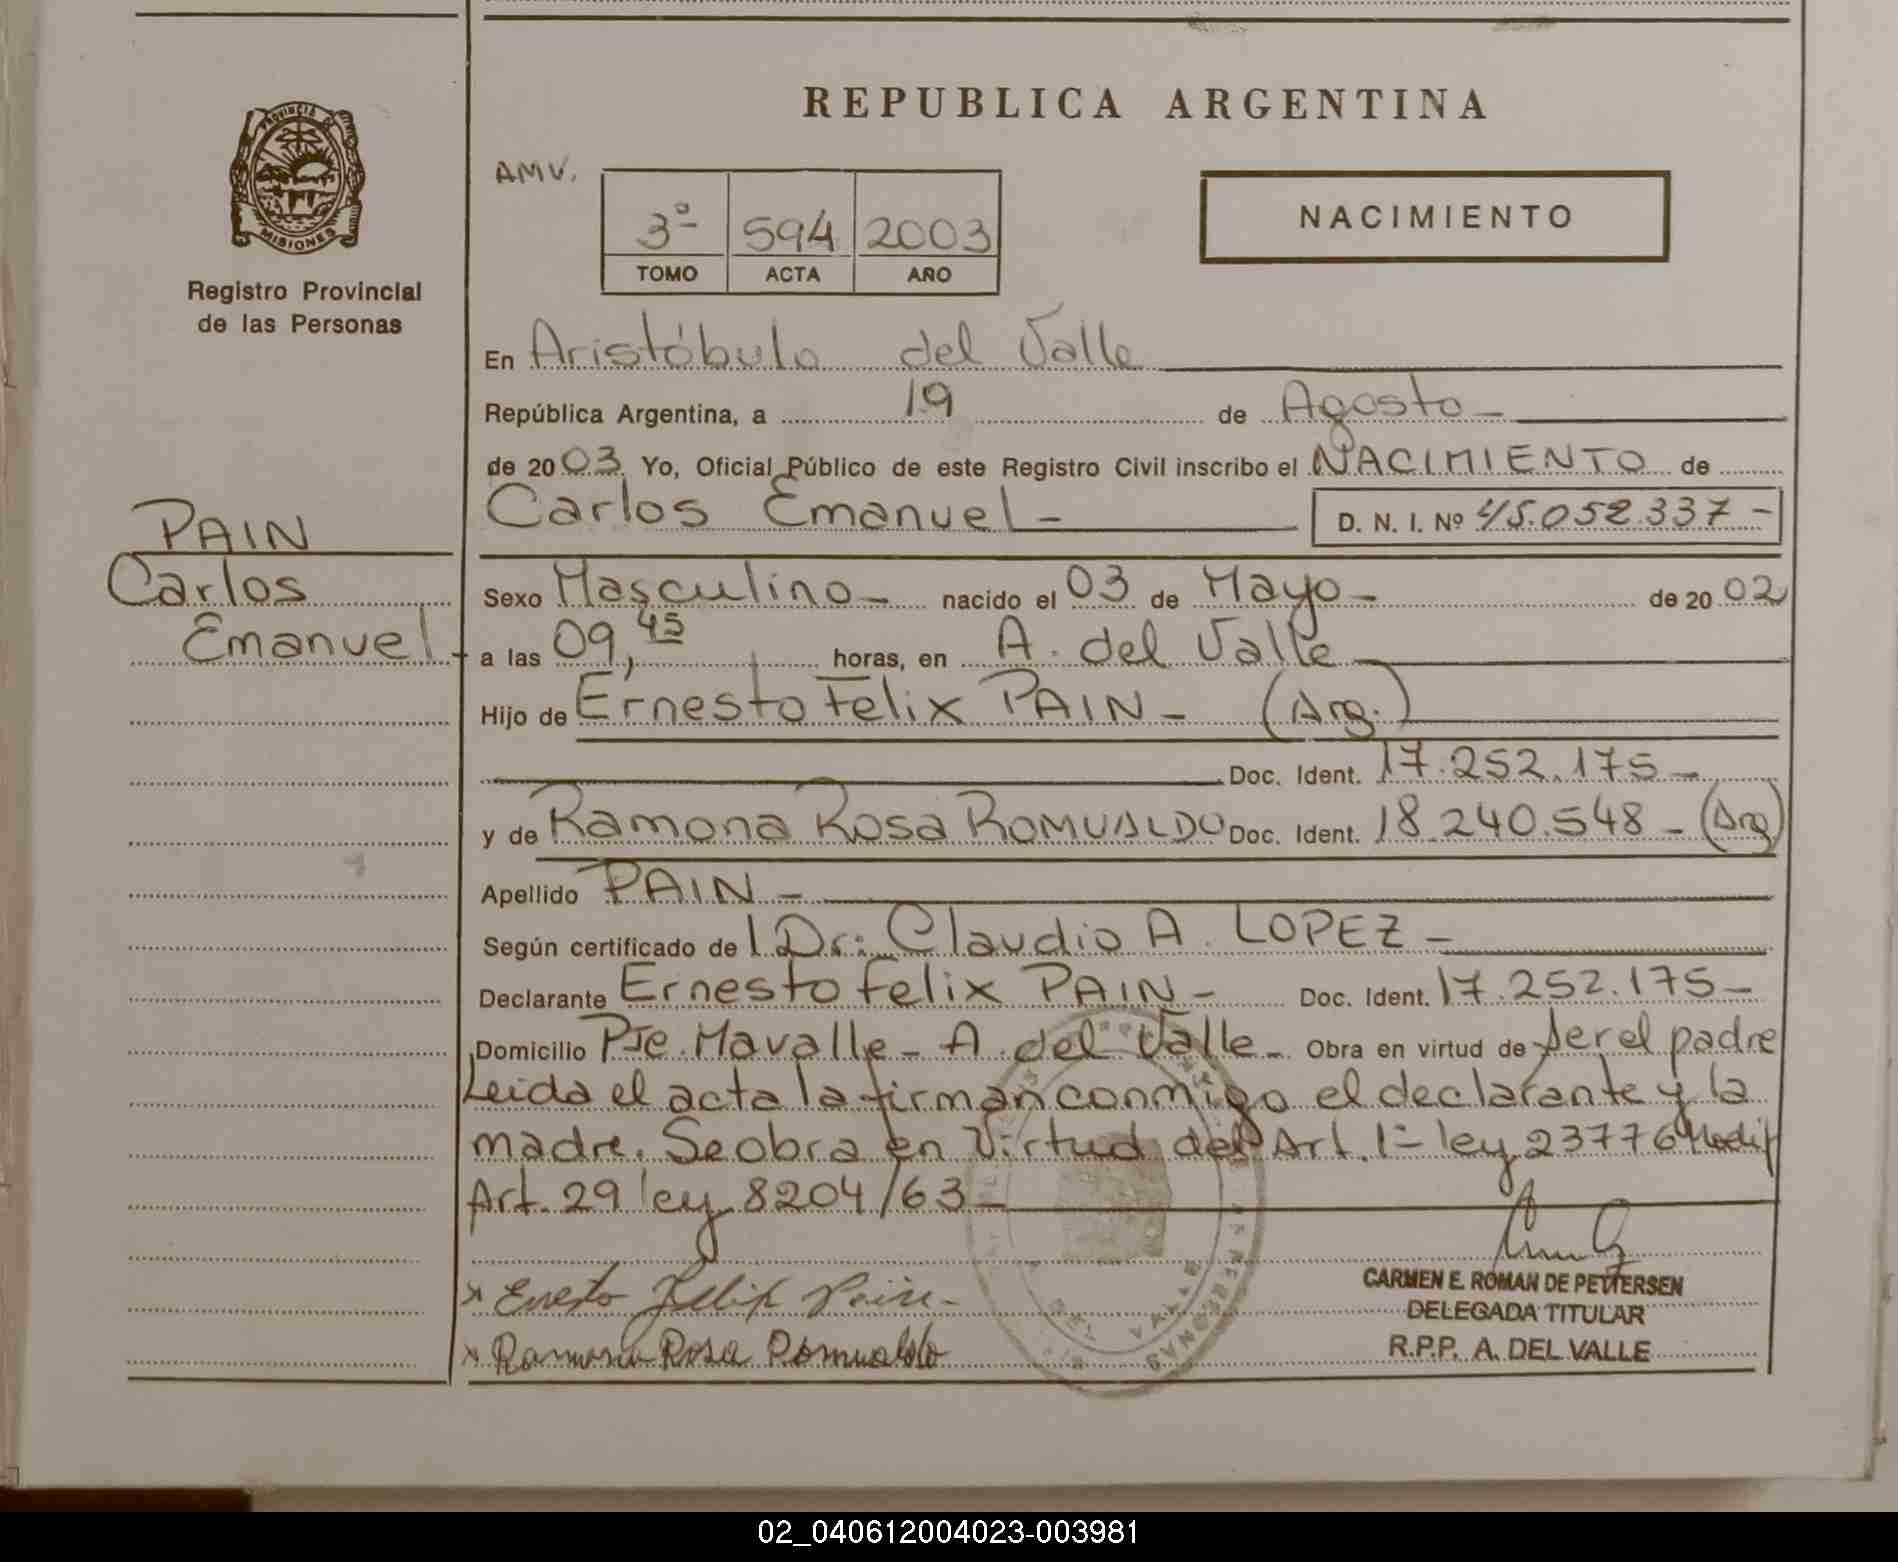 REPUBLICA ARGENTINA
PROVINCIA DE
MISIONES
Registro Provincial
de las Personas
AMV.
3º 594 2003
TOMO ACTA AÑO
NACIMIENTO
En Aristóbulo del Valle
República Argentina, a 19 de Agosto -
de 2003 Yo, Oficial Público de este Registro Civil inscribo el NACIMIENTO de
Carlos Emanuel - D. N. I. Nº 45.052.337 -
PAIN
Carlos
Emanuel
Sexo Masculino - nacido el 03 de Mayo - de 2002
a las 09,45 horas, en A. del Valle
Hijo de Ernesto Felix PAIN - (Arg.)
Doc. Ident. 17.252.175 -
y de Ramona Rosa ROMUALDO Doc. Ident. 18.240.548 - (Arg)
Apellido PAIN -
Según certificado de l Dr: Claudio A. LOPEZ -
Declarante Ernesto Felix PAIN - Doc. Ident. 17.252.175 -
Domicilio Pje. Mavalle - A. del Valle - Obra en virtud de ser el padre
Leida el acta la firman conmigo el declarante y la
madre. Se obra en Virtud del Art. 1º ley 23776 Modif
Art. 29 ley 8204/63 -
x Ernesto Felix Pain -
x Ramona Rosa Romualdo
CARMEN E. ROMAN DE PETTERSEN
DELEGADA TITULAR
R.P.P. A. DEL VALLE
DEL VALLE
02_040612004023-003981